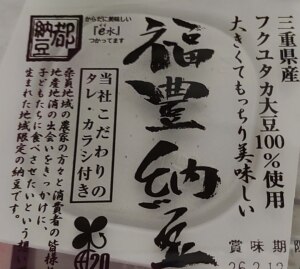 三重県産
フクユタカ大豆100%使用
大きくてもっちり美味しい
福豊納豆
からだに美味しい
「è水」
つかってます
都
納豆
当社こだわりの
タレ・カラシ付き
桑員地域の農家の方々と消費者の皆様
地産地消の出会いをきっかけに、
子どもたちに食べさせたいという想い
生まれた地域限定の納豆です。
賞味期限
26.2.12